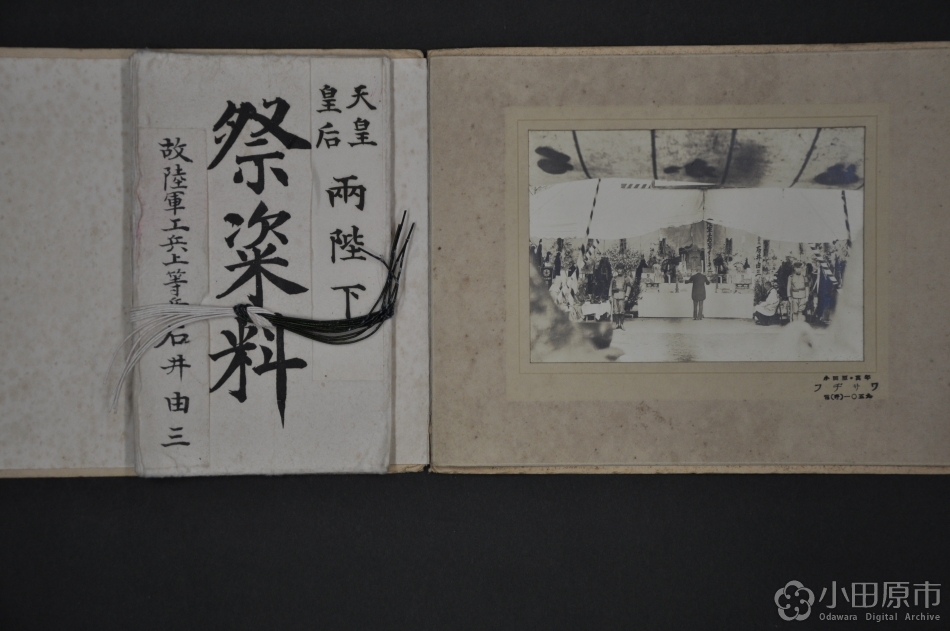 天皇
皇后
兩陛下
祭粢料
故陸軍工兵上等兵石井由三
ワリヂフ
小田原市
Odawara Digital Archive